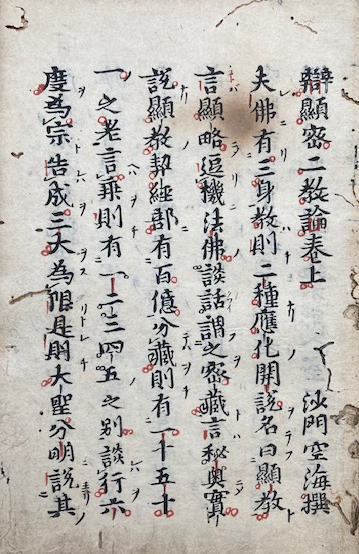 辯顯密二教論卷上 沙門空海撰
夫佛有三身教則二種應化開説名曰顯教
言顯略逗機法佛談話謂之密藏言秘奧實
説顯教契經部有百億分藏則有一十五十
一之差言乘則有一二三四五之別談行六
度爲宗告成三大爲限是則大聖分明説其